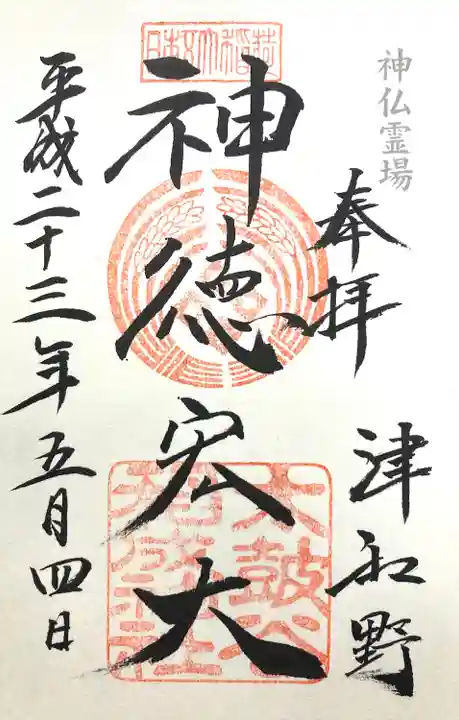 神仏霊場
奉拝
津和野
神徳宏大
平成二十三年五月四日
太鼓谷
稲成神社